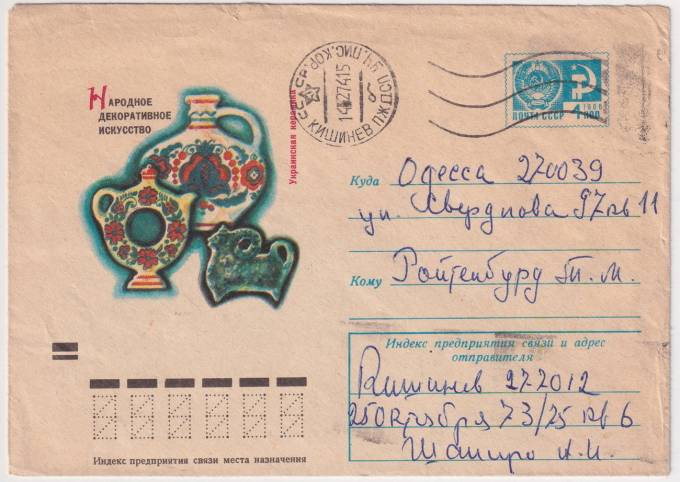 НАРОДНОЕ
ДЕКОРАТИВНОЕ
ИСКУССТВО
Украинская керамика
СССР
КИШИНЕВ ПЖДП
УЧ. ПИС. КОР.
ПОЧТА СССР
4
1966
Куда Одесса 270039
ул. Свердлова 97 кв 11
Кому Ройтенбурд Т. М.
Индекс предприятия связи и адрес
отправителя
Кишинев 277012
25 Октября 73/25 кв 6
Шапиро А. И.
Индекс предприятия связи места назначения